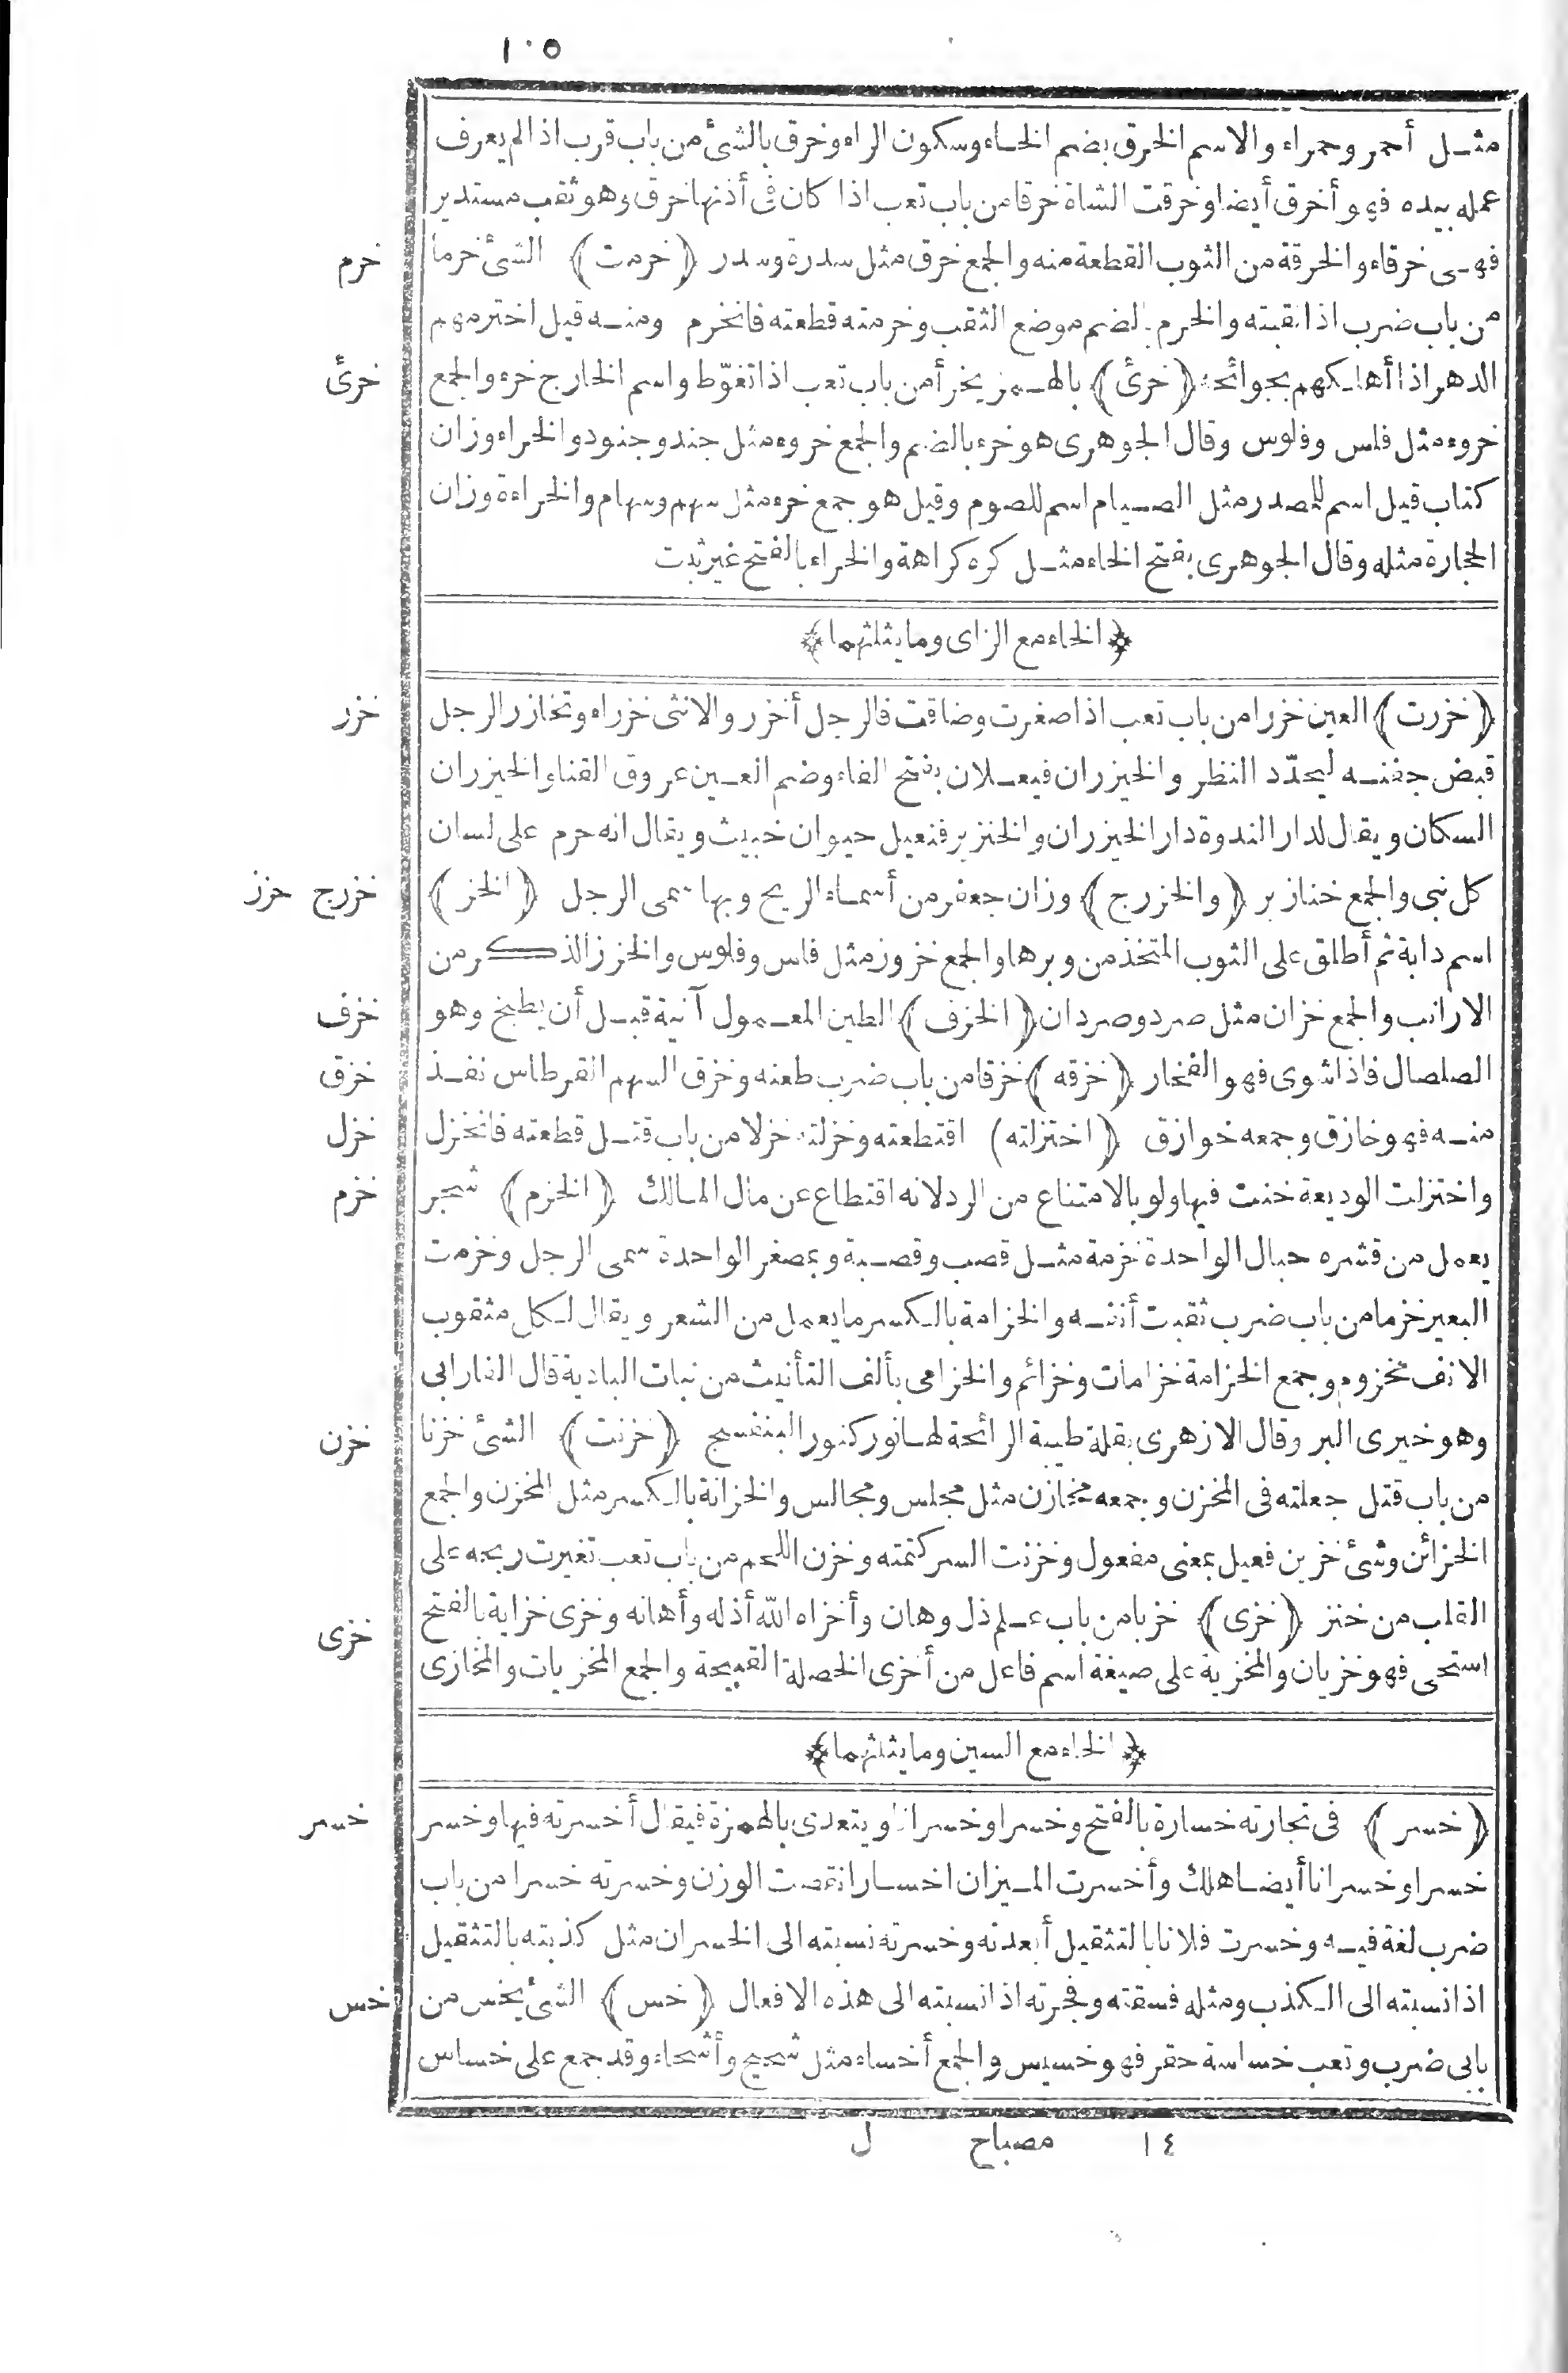 ١٠٥
مثل أحمر وحمراء والاسم الخرق بضم الخاء وسكون الراء وخرق بالشئ من باب قرب اذا لم يعرف
عمله بيده فهو أخرق أيضا وخرقت الشاة خرقا من باب تعب اذا كان فى أذنها خرق وهو ثقب مستدير
فهى خرقاء والخرقة من الثوب القطعة منه والجمع خرق مثل سدرة وسدر (خرمت) الشئ خرما
خرم
من باب ضرب اذا ثقبته والخرم بالضم موضع الثقب وخرمته قطعته فانخرم ومنه قيل اخترمهم
الدهر اذا أهلكهم بجوائحه (خرئ) بالهمز يخرأ من باب تعب اذا تغوّط واسم الخارج خرء والجمع
خرئ
خروء مثل فلس وفلوس وقال الجوهرى هو خرء بالضم والجمع خروء مثل جند وجنود والخراء وزان
كتاب قيل اسم للمصدر مثل الصيام اسم للصوم وقيل هو جمع خرء مثل سهم وسهام والخراءة وزان
الحجارة مثله وقال الجوهرى بفتح الخاء مثل كره كراهة والخراء بالفتح غير ثبت
(الخاء مع الزاى وما يثلثهما)
(خزرت) العين خزرا من باب تعب اذا صغرت وضاقت فالرجل أخزر والانثى خزراء وتخازر الرجل
خزر
قبض جفنه ليحدّد النظر والخيزران فيعلان بفتح الفاء وضم العين عروق القناء والخيزران
السكان ويقال لدار الندوة دار الخيزران والخنزير فنعيل حيوان خبيث ويقال انه حرم على لسان
كل نبى والجمع خنازير (والخزرج) وزان جعفر من أسماء الريح وبها سمى الرجل (الخز)
خزرج خزز
اسم دابة ثم أطلق على الثوب المتخذ من وبرها والجمع خزوز مثل فلس وفلوس والخزز الذكر من
الارانب والجمع خزان مثل صرد وصردان (الخزف) الطين المعمول آنية قبل أن يطبخ وهو
خزف
الصلصال فاذا شوى فهو الفخار (خزقه) خزقا من باب ضرب طعنه وخزق السهم القرطاس نفذ
خزق
منه فهو خازق وجمعه خوازق (اختزلته) اقتطعته وخزلته خزلا من باب قتل قطعته فانخزل
خزل
واختزلت الوديعة خنت فيها ولو بالامتناع من الرد لانه اقتطاع عن مال المالك (الخزم) شجر
خزم
يعمل من قشره حبال الواحدة خزمة مثل قصب وقصبة وبمصغر الواحدة سمى الرجل وخزمت
البعير خزما من باب ضرب ثقبت أنفه والخزامة بالكسر ما يعمل من الشعر ويقال لكل مثقوب
الانف مخزوم وجمع الخزامة خزامات وخزائم والخزامى بألف التأنيث من نبات البادية قال الفارابى
وهو خيرى البر وقال الازهرى بقلة طيبة الرائحة لها نور كنور البنفسج (خزنت) الشئ خزنا
خزن
من باب قتل جعلته فى المخزن وجمعه مخازن مثل مجلس ومجالس والخزانة بالكسر مثل المخزن والجمع
الخزائن وشئ خزين فعيل بمعنى مفعول وخزنت السر كتمته وخزن اللحم من باب تعب تغيرت ريحه على
القلب من خنز (خزى) خزيا من باب علم ذل وهان وأخزاه الله أذله وأهانه وخزى خزاية بالفتح
خزى
استحى فهو خزيان والمخزية على صيغة اسم فاعل من أخزى الخصلة القبيحة والجمع المخزيات والمخازى
(الخاء مع السين وما يثلثهما)
(خسر) فى تجارته خسارة بالفتح وخسرا وخسرانا ويتعدى بالهمزة فيقال أخسرته فيها وخسر
خسر
خسرا وخسرانا أيضا هلك وأخسرت الميزان اخسارا نقصت الوزن وخسرته خسرا من باب
ضرب لغة فيه وخسرت فلانا بالتثقيل أبعدته وخسرته نسبته الى الخسران مثل كذبته بالتثقيل
اذا نسبته الى الكذب ومثله فسقته وفجرته اذا نسبته الى هذه الافعال (خس) الشئ يخس من
خس
بابى ضرب وتعب خساسة حقر فهو خسيس والجمع أخساء مثل شحيح وأشحاء وقد جمع على خساس
١٤ مصباح ل